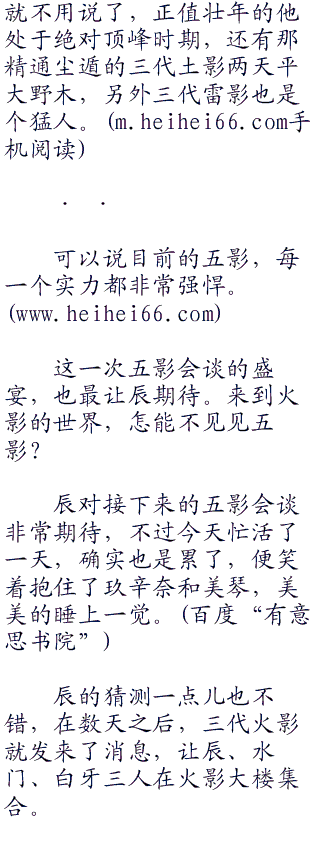 就不用说了，正值壮年的他
处于绝对顶峰时期，还有那
精通尘遁的三代土影两天平
大野木，另外三代雷影也是
个猛人。(m.heihei66.com手
机阅读)
. .
可以说目前的五影，每
一个实力都非常强悍。
(www.heihei66.com)
这一次五影会谈的盛
宴，也最让辰期待。来到火
影的世界，怎能不见见五
影？
辰对接下来的五影会谈
非常期待，不过今天忙活了
一天，确实也是累了，便笑
着抱住了玖辛奈和美琴，美
美的睡上一觉。(百度“有意
思书院”)
辰的猜测一点儿也不
错，在数天之后，三代火影
就发来了消息，让辰、水
门、白牙三人在火影大楼集
合。